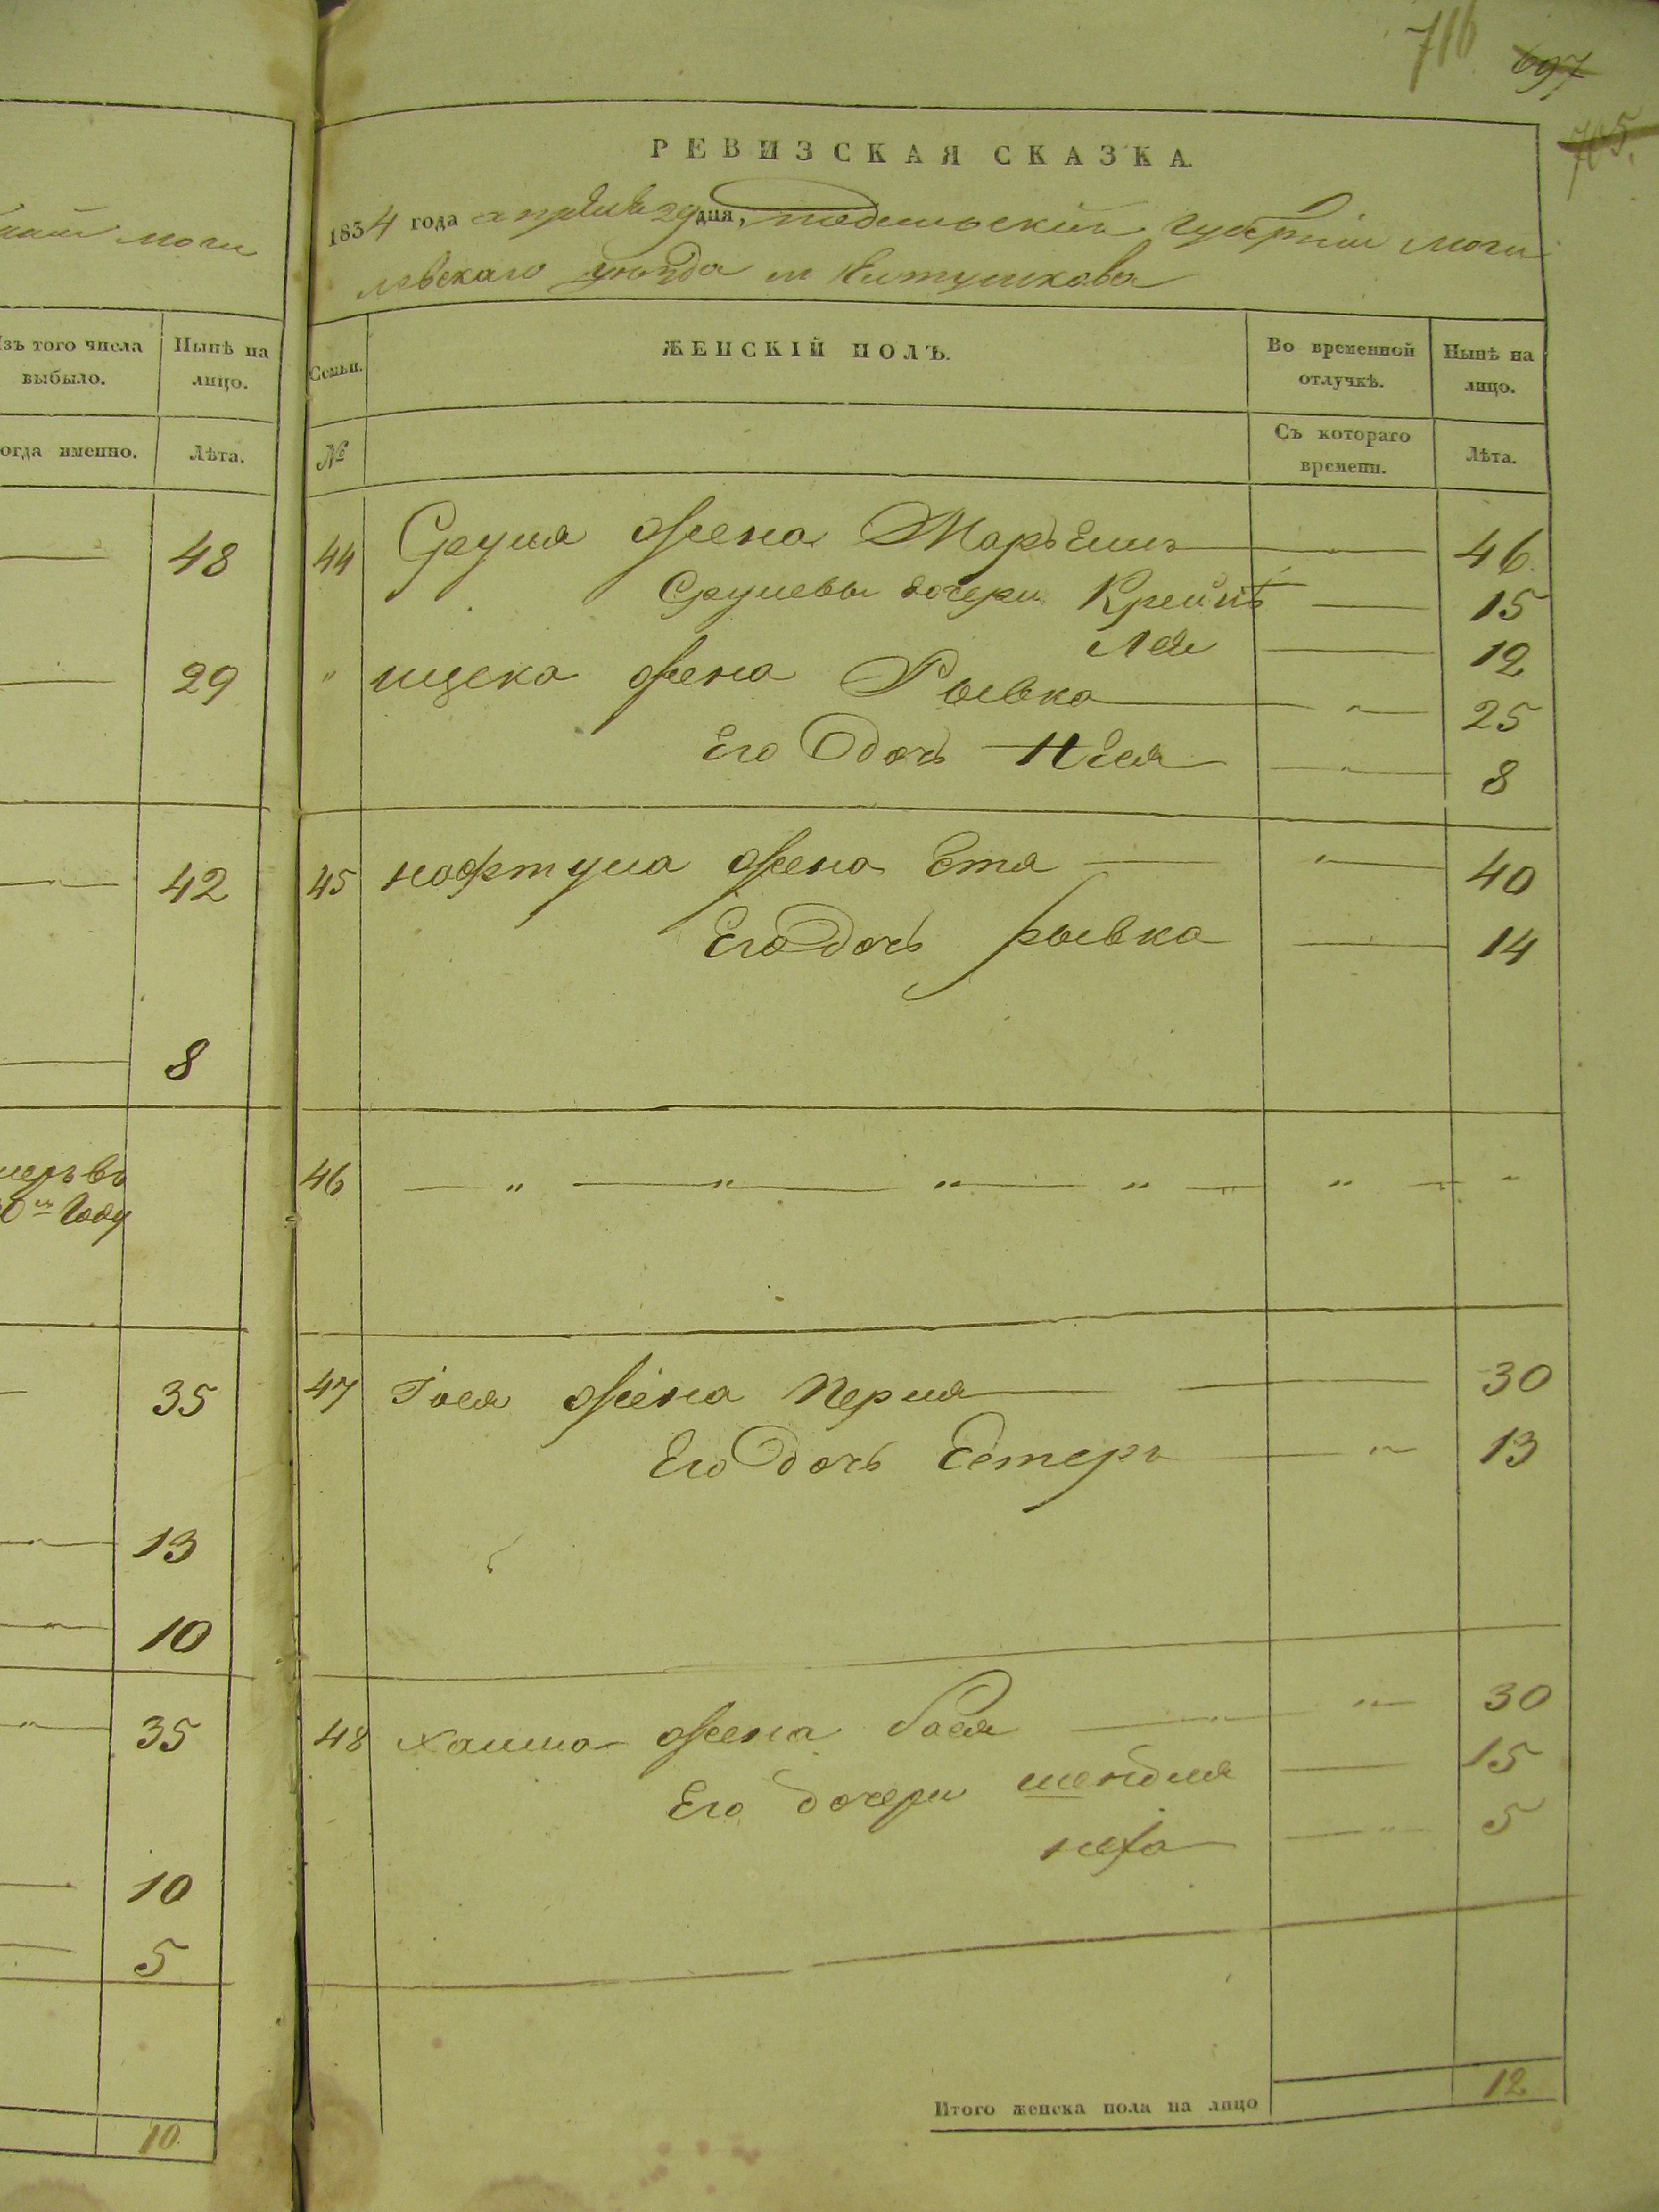 716
697
705.
наии моги
Изъ того числа выбыло.
Нынѣ на лицо.
Когда именно.
Лѣта.
48
29
42
8
умеръ въ
0мъ году
35
13
10
35
10
5
10
РЕВИЗСКАЯ СКАЗКА.
1854 года апреля 29 дня, подольскій губерніи моги
левскаго уюзда м
Семьи.
ЖЕНСКІЙ ПОЛЪ.
Во временной отлучкѣ.
Нынѣ на лицо.
№
Съ котораго времени.
Лѣта.
44 Сруля жена Марьемъ 46
Срулевы дочери Крейнѣ 15
Лея 12
" ицека жена Рывка " 25
Его дочъ " 8
45 нафтула жена Етя " 40
Его дочъ рывка 14
46 " " " " " " "
47 жена Перля 30
Его дочъ Естеръ " 13
48 хаима жена Бася " 30
Его дочери шендля 15
неха " 5
Итого женска пола на лицо 12